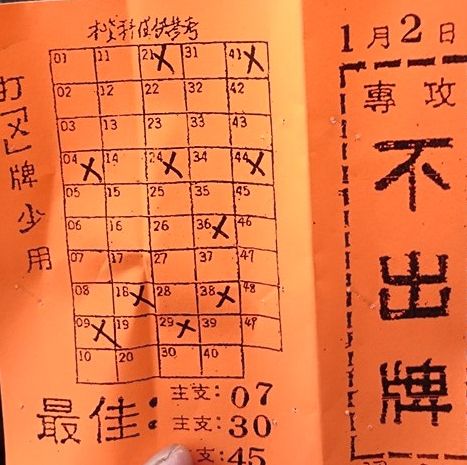 本資料僅供參考
打「X」牌少用
01 11 21X 31 41X
02 12 22 32 42
03 13 23 33 43
04X 14 24X 34 44X
05 15 25 35 45
06 16 26 36X 46
07 17 27 37 47
08 18X 28 38X 48
09X 19 29X 39 49
10 20 30 40
最佳：
主支：07
主支：30
支：45
1月2日
專攻
不出牌